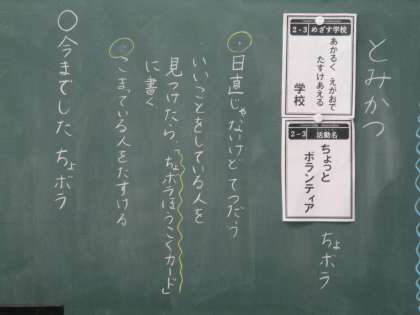 とみかつ
2-3 めざす学校
あかるく えがおで
たすけあえる
学校
2-3 活動名
ちょっと
ボランティア
ちょボラ
・日直じゃないけどてつだう
・いいことをしている人を
見つけたら、「ちょボラほうこくカード」
に書く
・こまっている人をたすける
○今までした ちょボラ